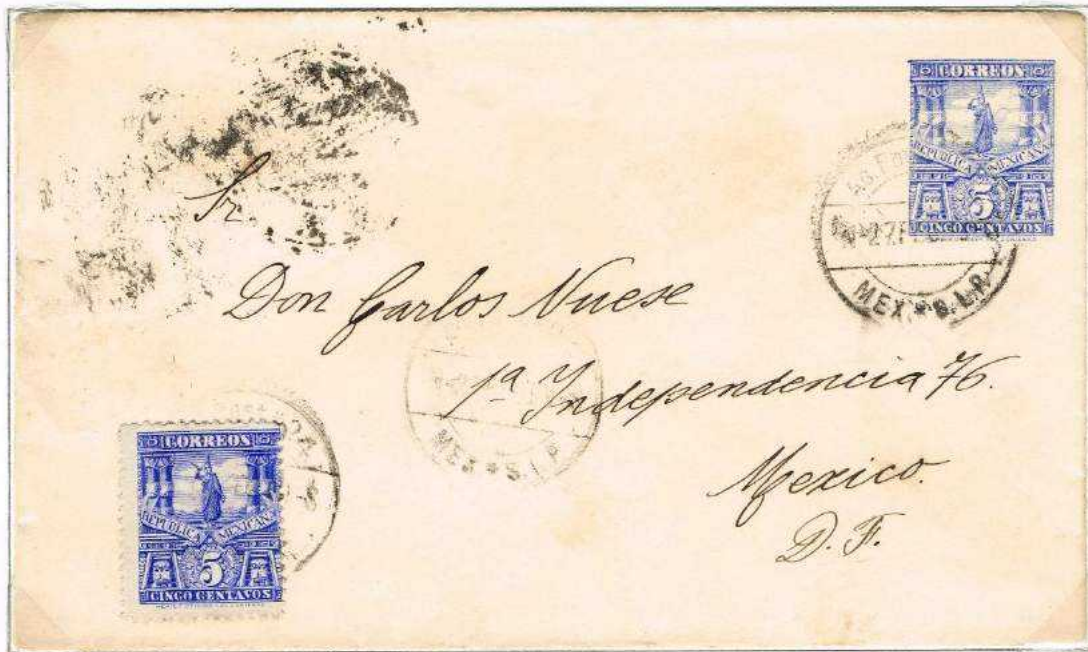 CORREOS
REPUBLICA MEXICANA
5 5
CINCO CENTAVOS
MEX. * S.L.P.
Sr.
Don Carlos Nuese
1ª Independencia 76.
Mexico.
D. F.
MEX * S.L.P.
CORREOS
REPUBLICA MEXICANA
5
CINCO CENTAVOS